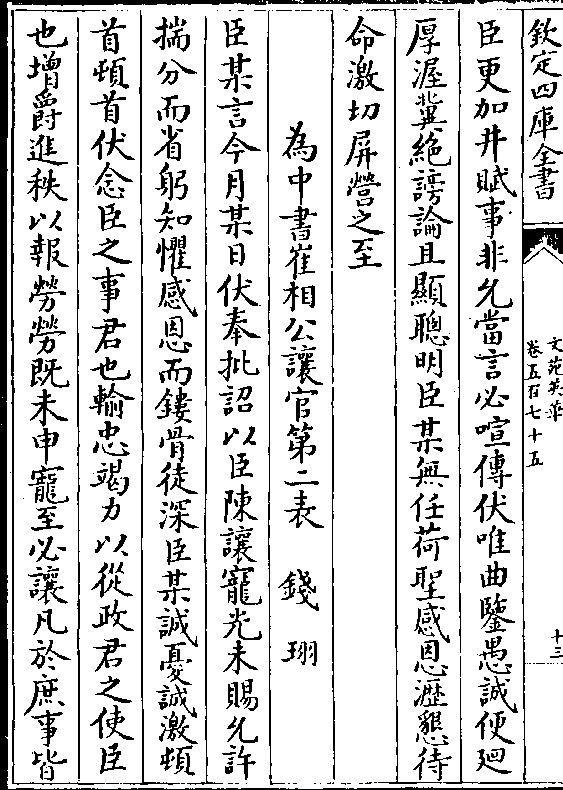 欽定四庫全書
文苑英華
卷五百七十五
十三
臣更加井賦事非允當言必喧傳伏唯曲鑒愚誠便廻
厚渥冀絶謗論且顯聰明臣某無任荷聖感恩瀝懇待
命激切屏營之至
為中書崔相公讓官第二表 錢珝
臣某言今月某日伏奉批詔以臣陳讓寵光未賜允許
揣分而省躬知懼感恩而鏤骨徒深臣某誠憂誠激頓
首頓首伏念臣之事君也輸忠竭力以從政君之使臣
也增爵進秩以報勞勞既未申寵至必讓凡於庶事皆